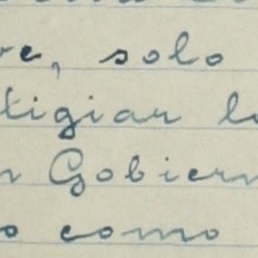 ve, solo
tigiar l
n Gobiern
o como